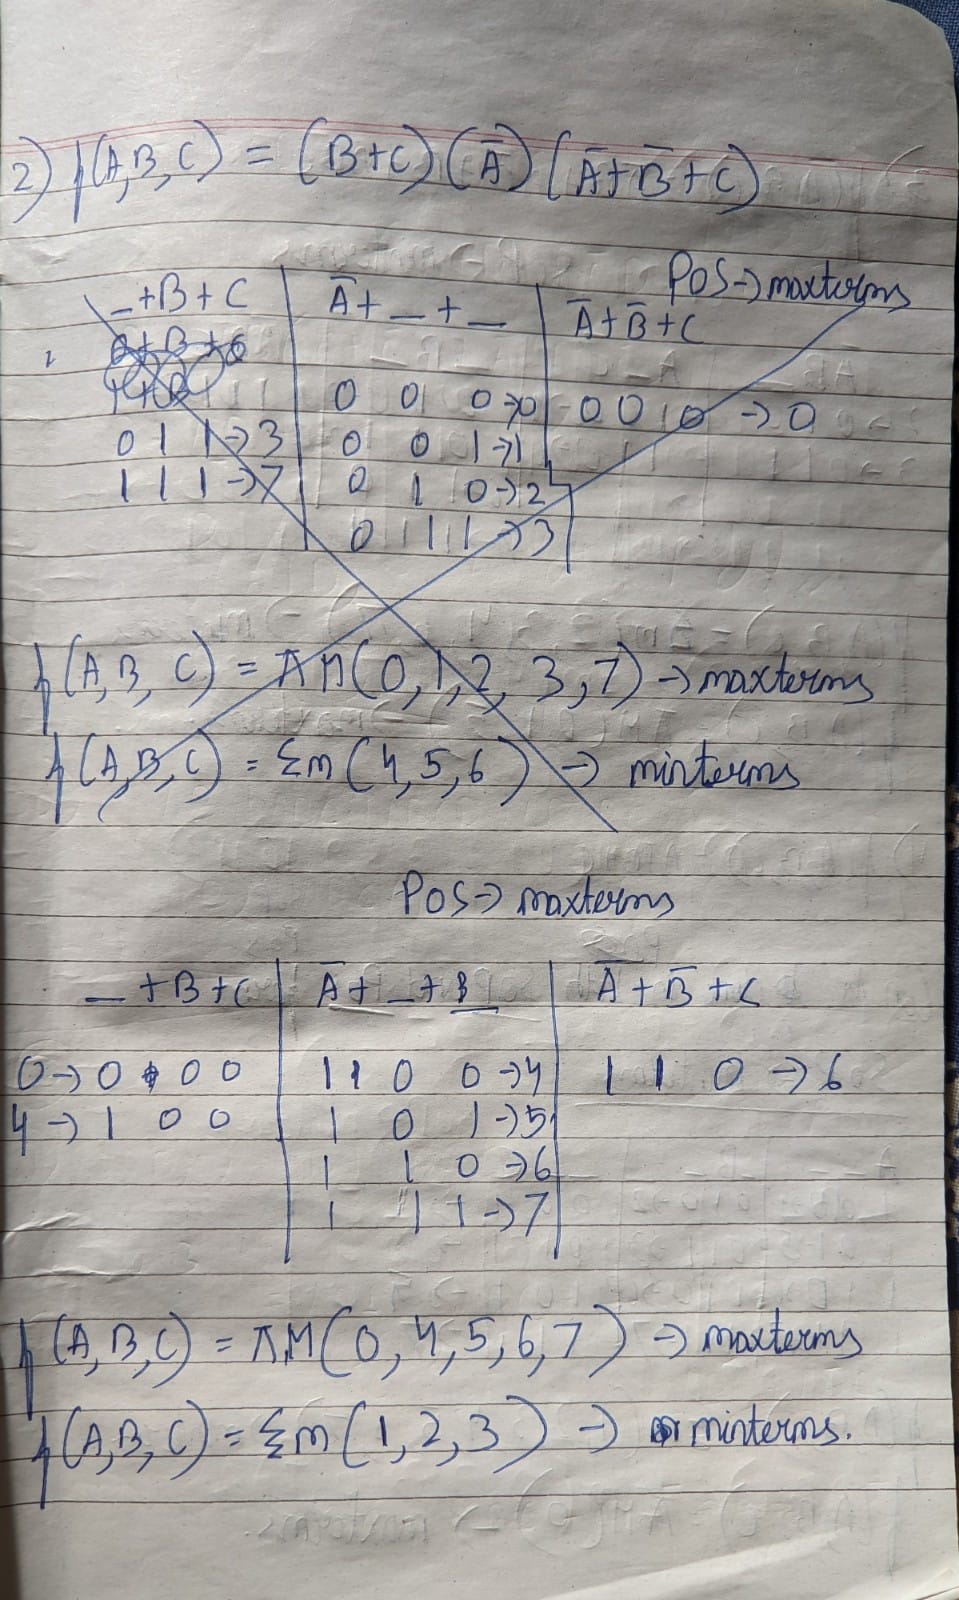 2) f(A,B,C) = (B+C)(A̅)(A̅+B̅+C)
POS→maxterms
_+B+C | A̅+_+_ | A̅+B̅+C
0 0 0→0 | 0 0 0 →0
0 1 1→3 | 0 0 1→1
1 1 1→7 | 0 1 0→2
0 1 1→3
f(A,B,C) = πM(0,1,2,3,7)→maxterms
f(A,B,C) = Σm(4,5,6) → minterms
POS→ maxterms
_+B+C | A̅+_+_ | A̅+B̅+C
0→0 0 0 | 1 0 0→4 | 1 1 0 →6
4→1 0 0 | 1 0 1→5
1 1 0→6
1 1 1→7
f(A,B,C) = πM(0,4,5,6,7) →maxterms
f(A,B,C) = Σm(1,2,3) → minterms.